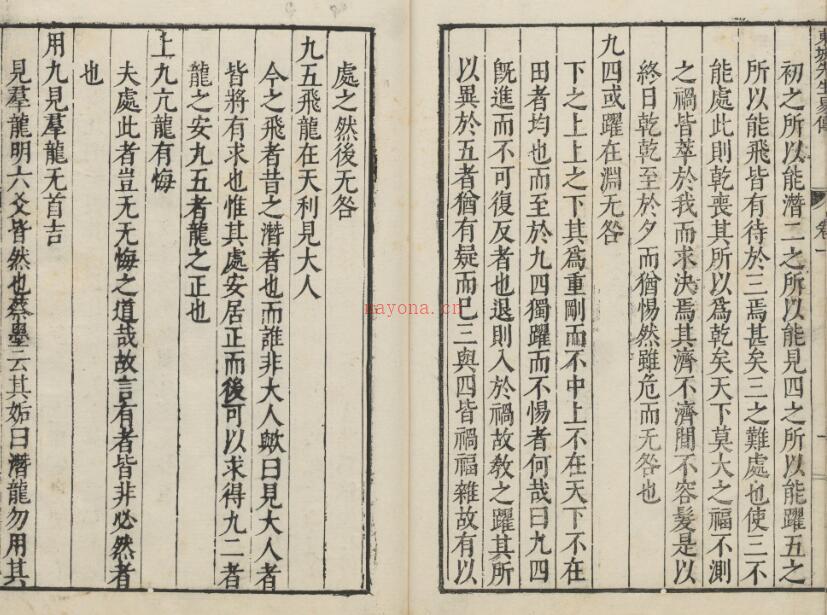 初之所以能潛二之所以能見四之所以能躍五之
所以能飛皆有待於三焉甚矣三之難處也使三不
能處此則乾喪其所以爲乾矣天下莫大之福不測
之禍皆萃於我而求決焉其濟不濟閒不容髮是以
終日乾乾至於夕而猶惕然雖危而无咎也
九四或躍在淵无咎
下之上上之下其爲重剛而不中上不在天下不在
田者均也而至於九四獨躍而不惕者何哉曰九四
旣進而不可復反者也退則入於禍故敎之躍其所
以異於五者猶有疑而已三與四皆禍福雜故有以
處之然後无咎
九五飛龍在天利見大人
今之飛者昔之潛者也而誰非大人歟曰見大人者
皆將有求也惟其處安居正而後可以求得九二者
龍之安九五者龍之正也
上九亢龍有悔
夫處此者豈无无悔之道哉故言有者皆非必然者
也
用九見羣龍无首吉
見羣龍明六爻皆然也蔡墨云其姤曰潛龍勿用其
東坡先生易傳
卷一
nayona.cn